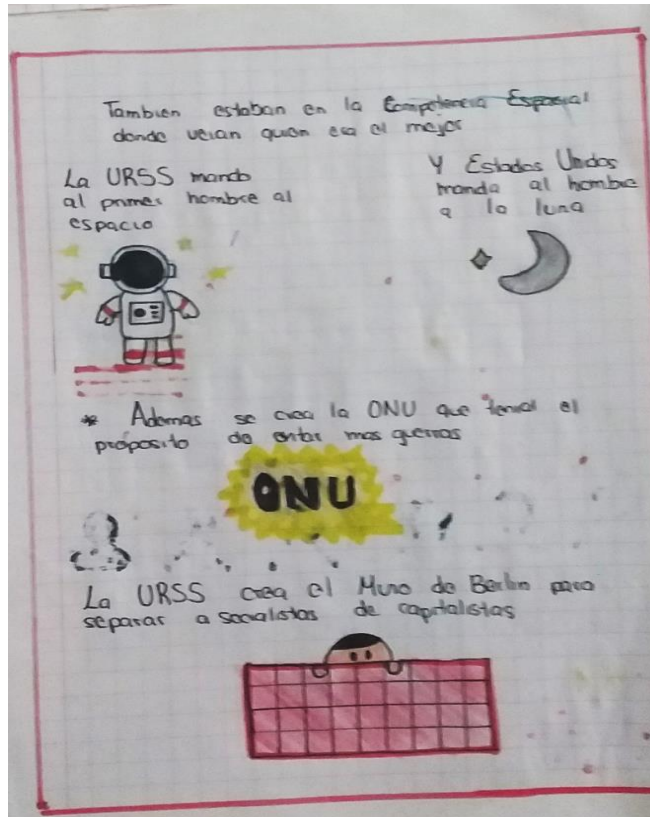 Tambien estaban en la Competencia Espacial
donde veian quien era el mejor
La URSS mando
al primer hombre al
espacio
Y Estados Unidos
manda al hombre
a la luna
* Ademas se crea la ONU que tenia el
proposito de evitar mas guerras
ONU
La URSS crea el Muro de Berlin para
separar a socialistas de capitalistas